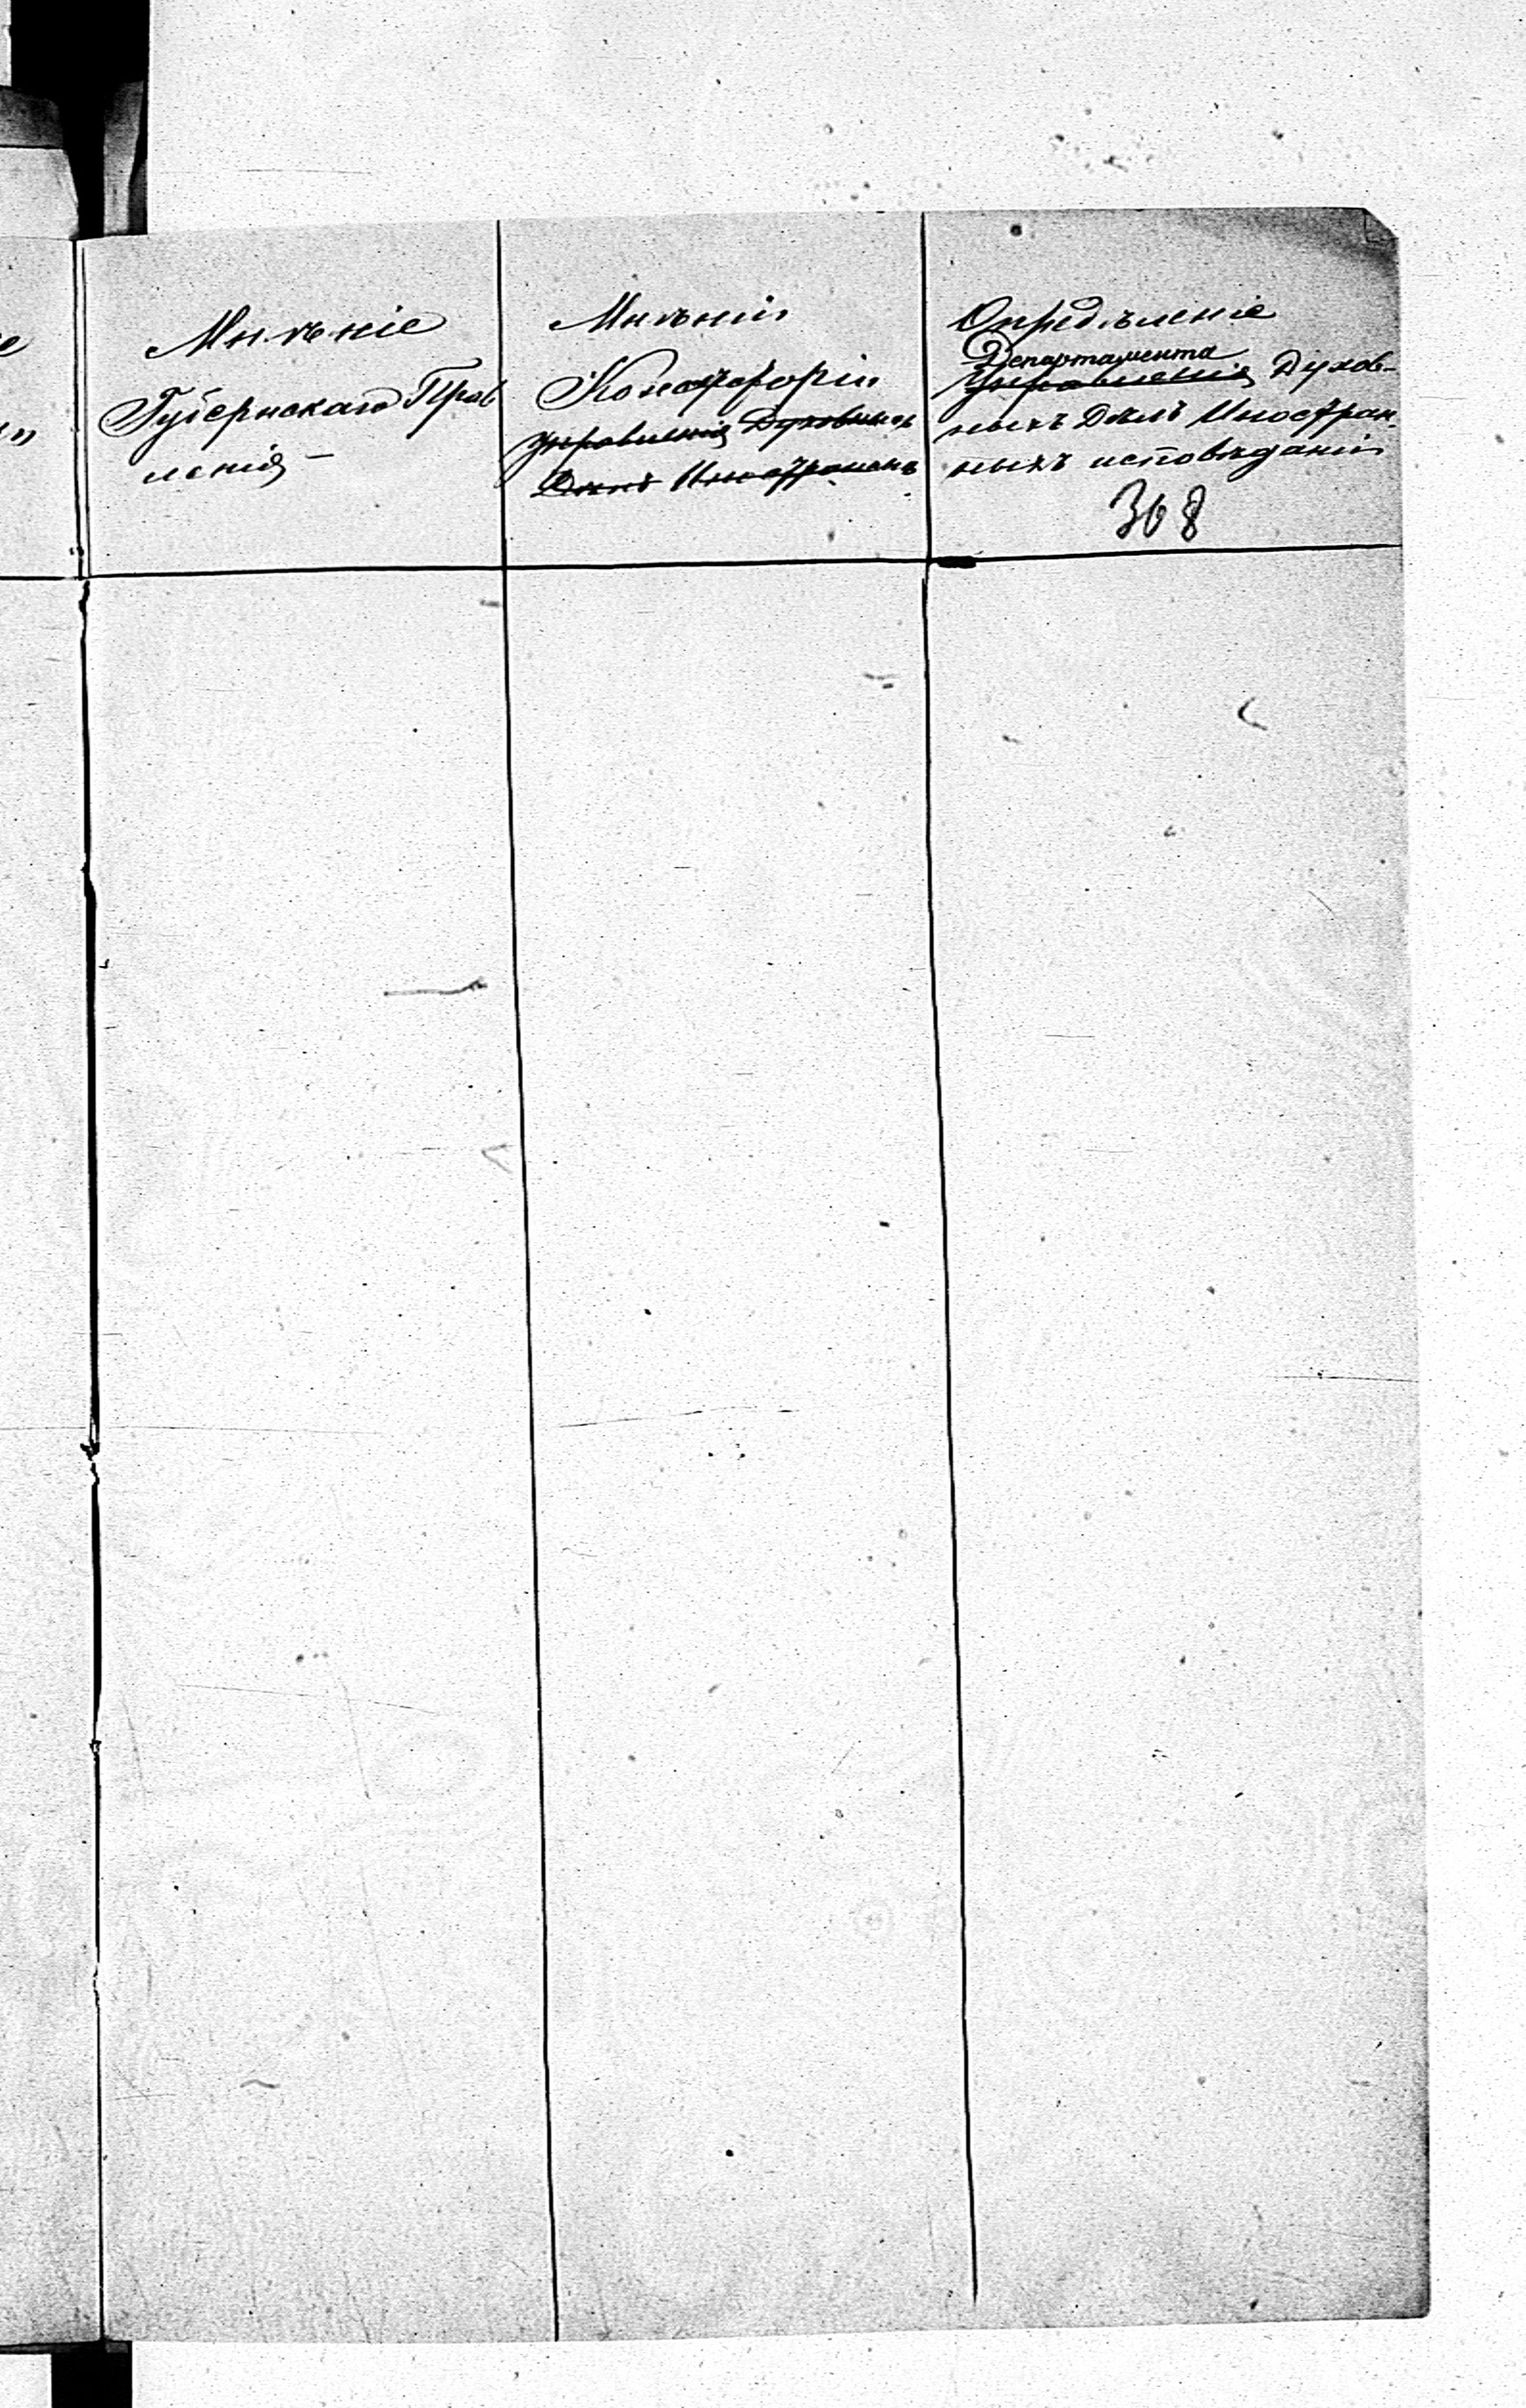 Мнѣніе
Губернскаго Прав
ленія
Мнѣніи
Консисторіи
Управленія Духовныхъ
Дѣлъ Иностранныхъ
Опредѣленіе
Департамента
Управленія Духов-
ныхъ Дѣлъ Иностран-
ныхъ исповѣданій
308